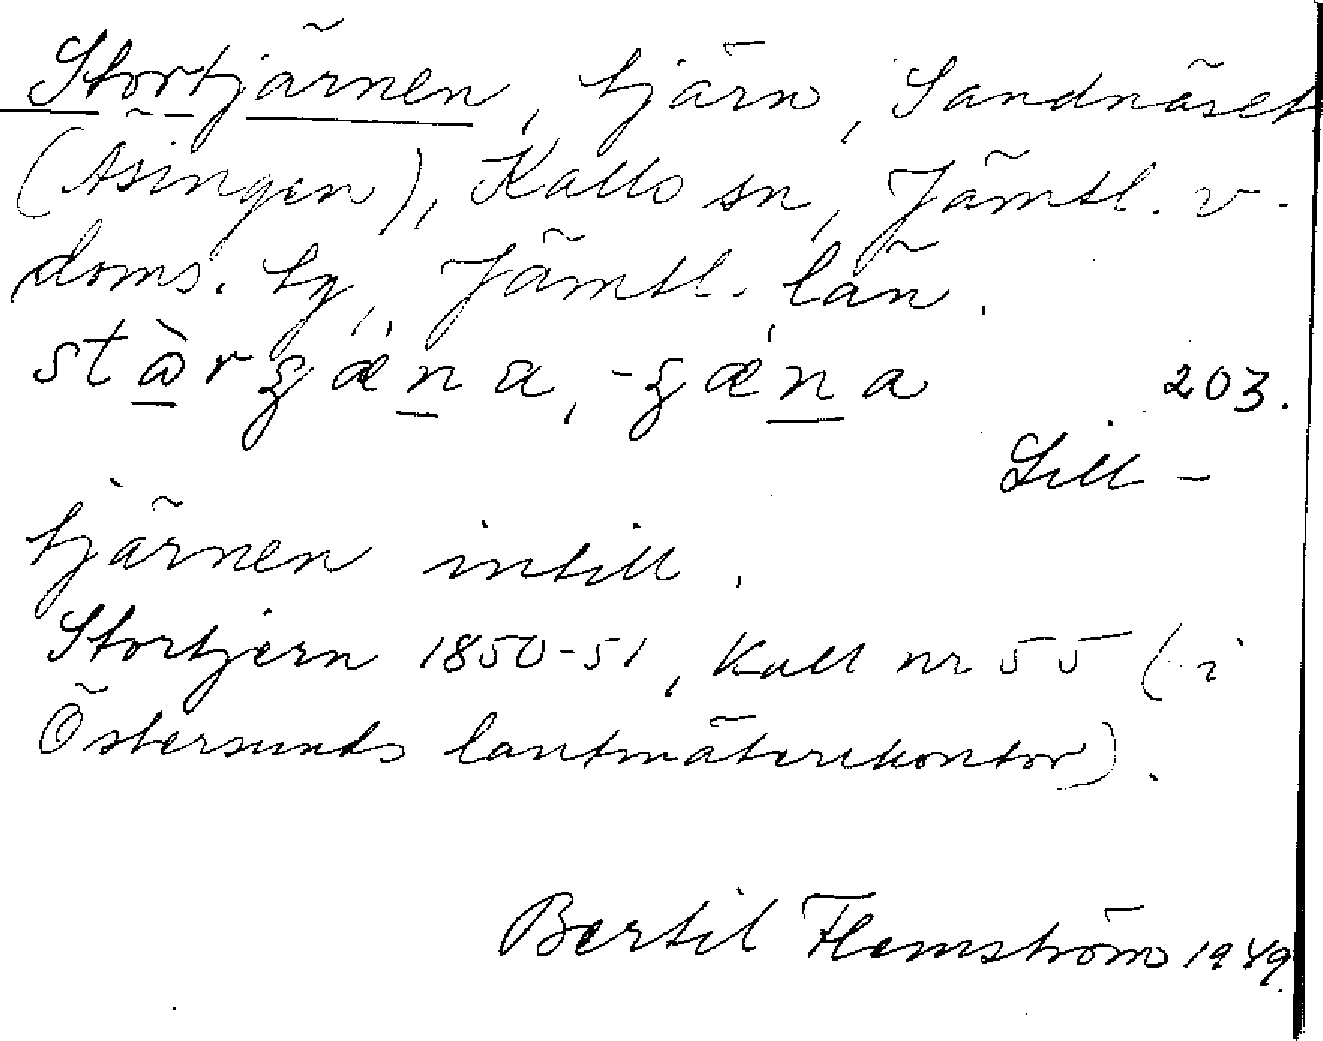 Stortjärnen, tjärn, Sandnäset
(Äsingen), Kalls sn, Jämtl. v.
doms. tg, Jämtl. län.
203.
Lill-
tjärnen intill.
Stortjern 1850-51, Kall nr 55 (i
Östersunds lantmäterikontor).
Bertil Flemström 1949.